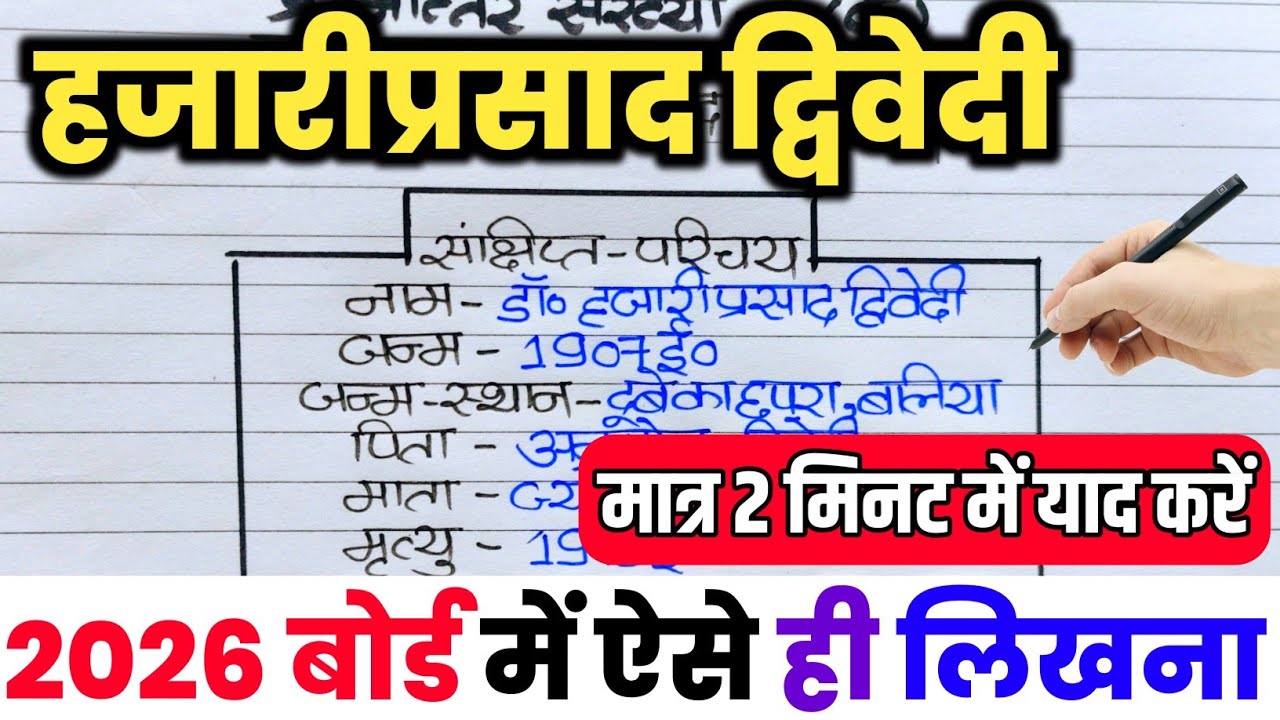 हजारीप्रसाद द्विवेदी
संक्षिप्त-परिचय
नाम - डॉ० हजारीप्रसाद द्विवेदी
जन्म - 1907 ई०
जन्म-स्थान - दूबे का छपरा, बलिया
पिता -
माता -
मृत्यु - 19
मात्र 2 मिनट में याद करें
2026 बोर्ड में ऐसे ही लिखना